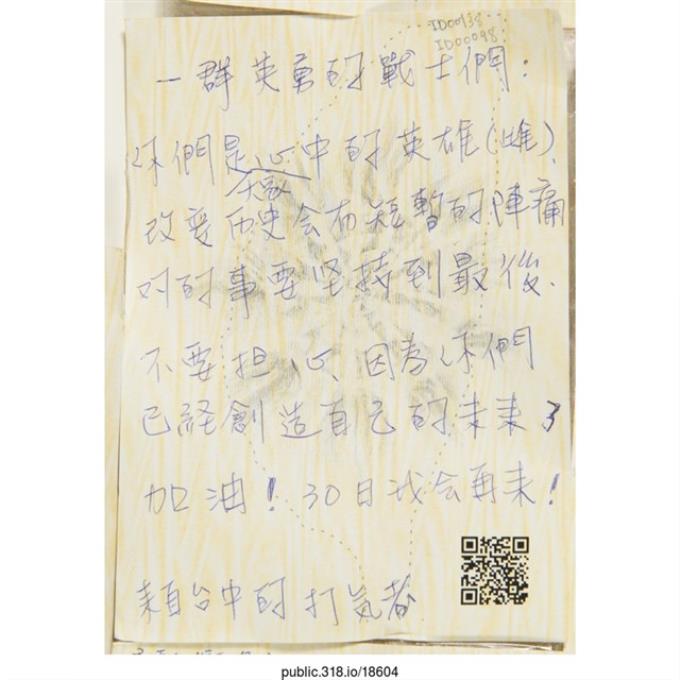 ID00138
ID00098
一群英勇的戰士們：
你們是大家心中的英雄(雌)、
改变历史会有短暫的陣痛
对的事要坚持到最後、
不要担心、因為你們
已経創造自己的未来了
加油！30日我会再来！
来自台中的打気者
public.318.io/18604